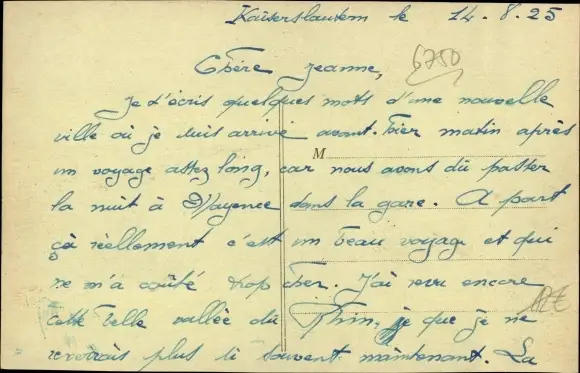 Kaiserslautern le 14.8.25
6750
Chère Jeanne,
Je t'écris quelques mots d'une nouvelle
ville où je suis arrivé avant-hier matin après
un voyage assez long, car nous avons dû passer
M
la nuit à Mayence dans la gare. A part
çà réellement c'est un beau voyage et qui
ne m'a coûté trop cher. J'ai revu encore
cette belle vallée du Rhin, que je ne
reverrais plus si souvent maintenant. La